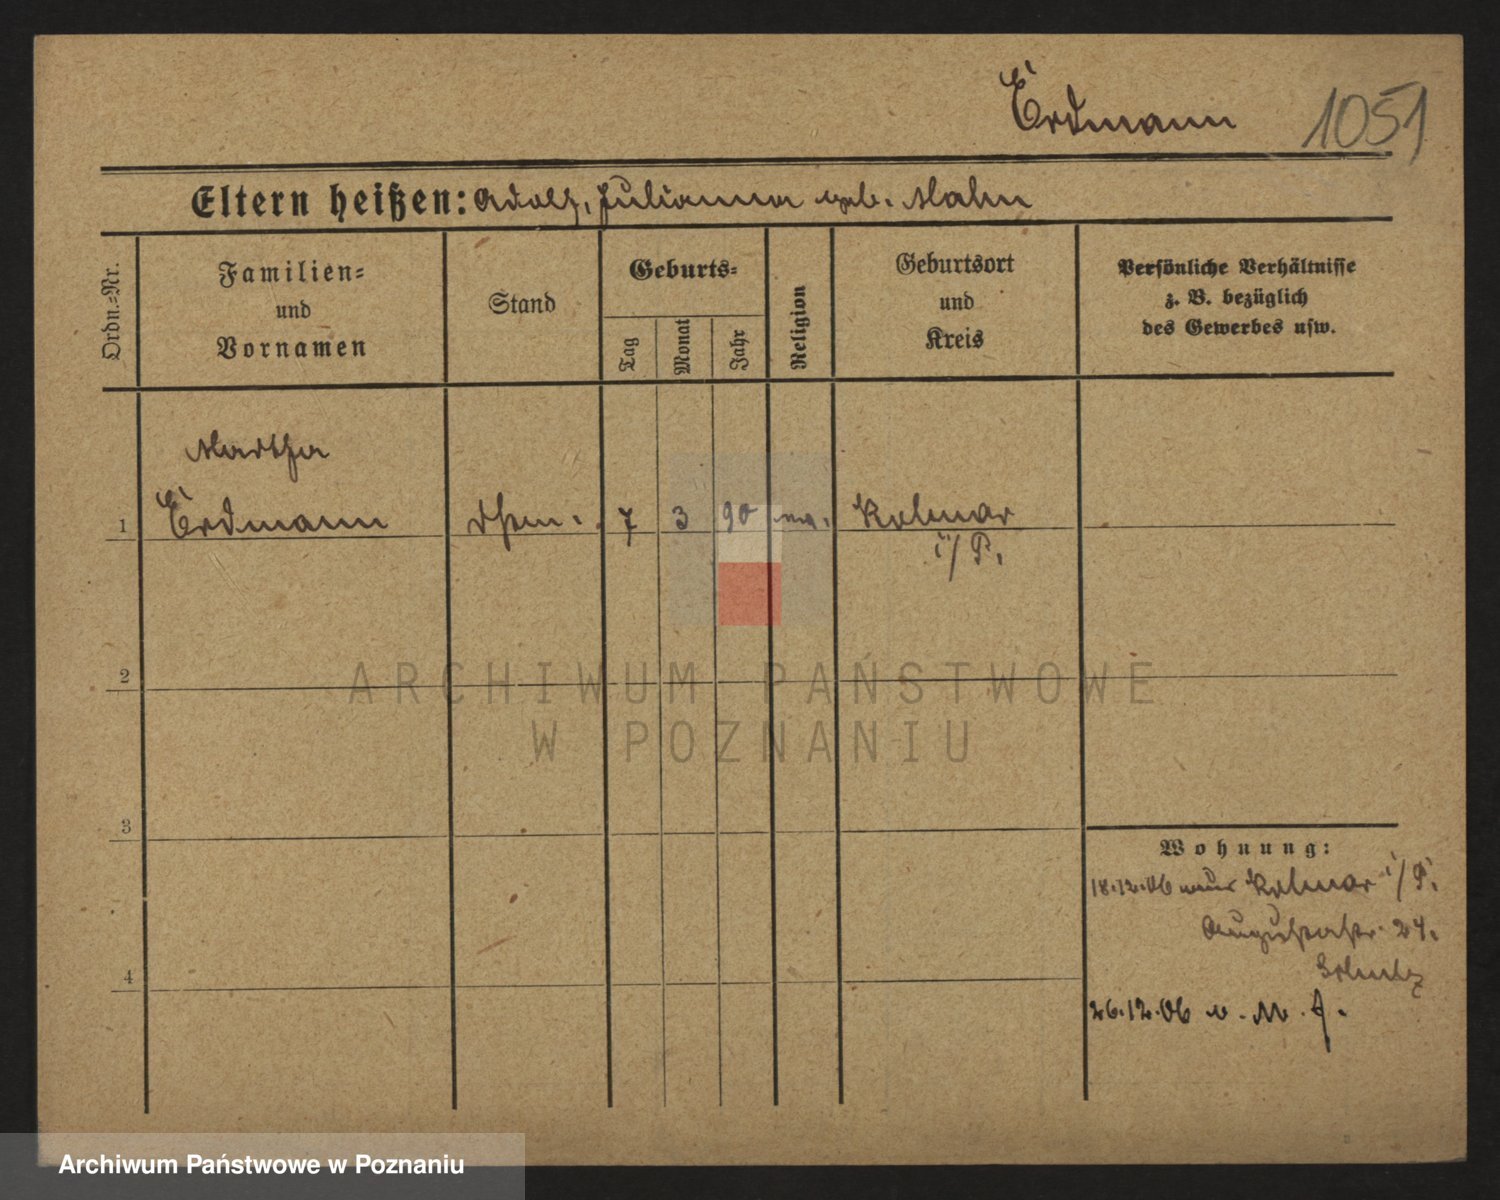 Erdmann 1051
Eltern heißen: Adolf, Julianna geb. Mahn
Ordn.=Nr.
Familien=
und
Vornamen
Stand
Geburts=
Tag
Monat
Jahr
Religion
Geburtsort
und
Kreis
Persönliche Verhältnisse
z. B. bezüglich
des Gewerbes usw.
Martha
1 Erdmann 7 3 90 Kolmar
i/P.
2
3
4
Wohnung:
18.12.06 Kolmar i/P.
Augustastr. 24.
26.12.06
ARCHIWUM PAŃSTWOWE
W POZNANIU
Archiwum Państwowe w Poznaniu